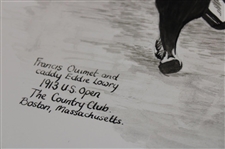 Francis Ouimet and
caddy Eddie Lowry
1913 U.S. Open
The Country Club
Boston, Massachusetts.